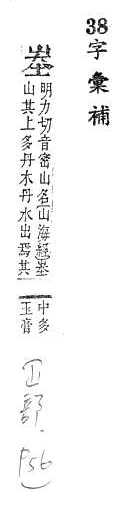 38字彙補
明力切音密山名山海經峚
山其上多丹木丹水出焉其
中多
玉膏
山部.
P56